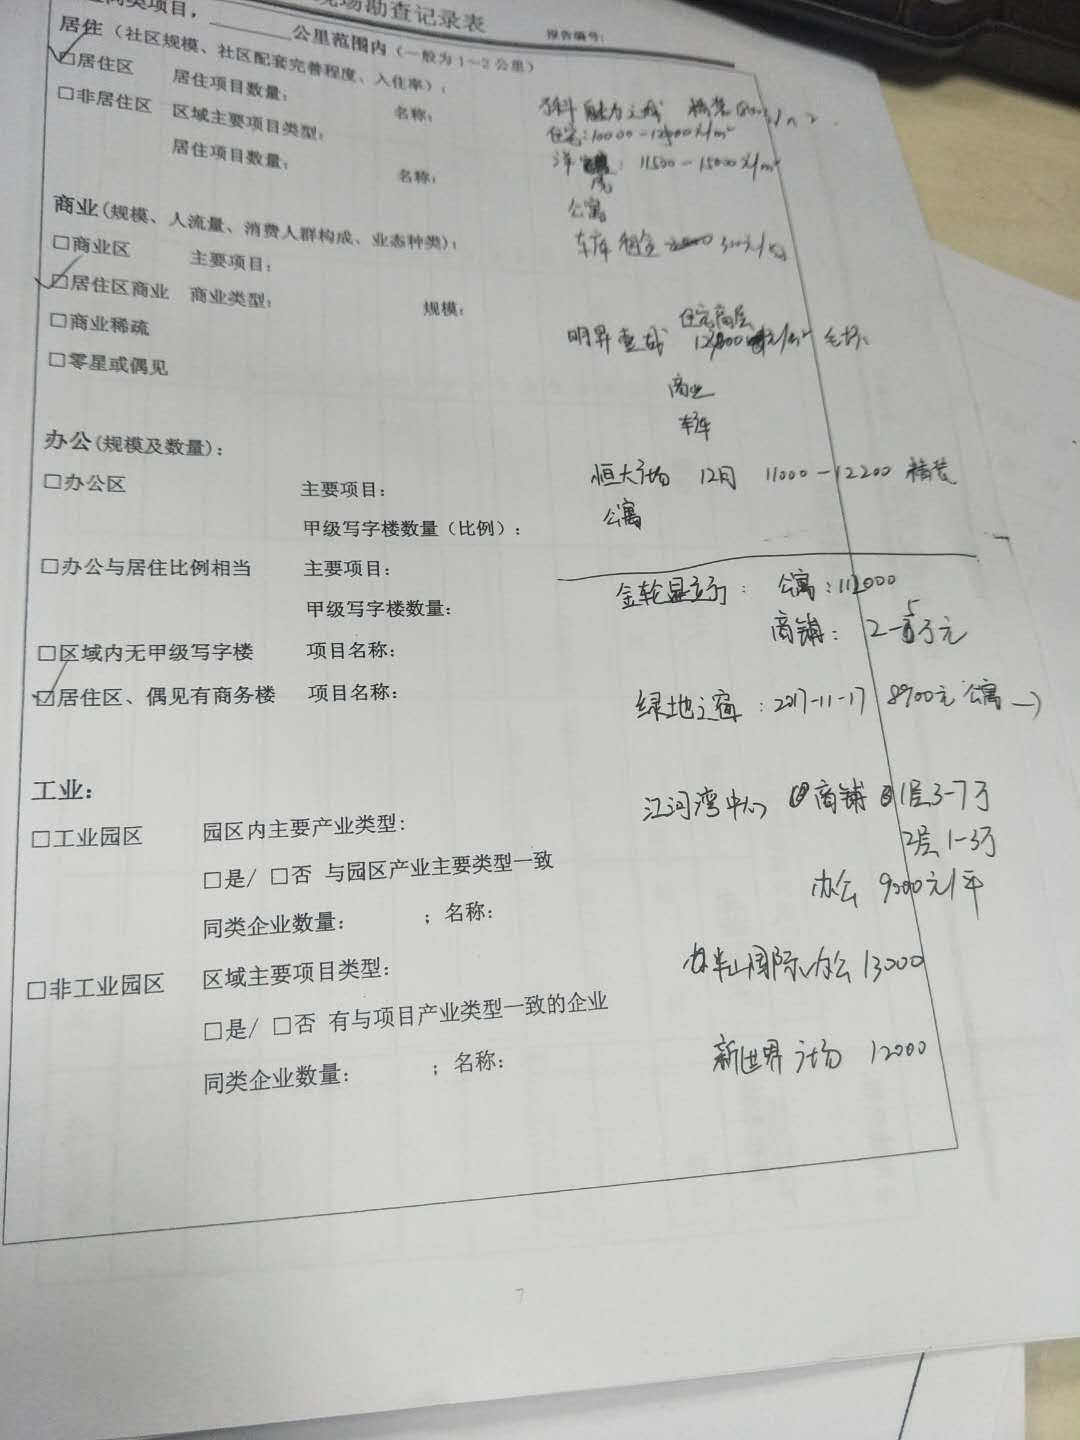 现场勘查记录表 报告编号:
同类项目,________公里范围内(一般为1~2公里)
居住(社区规模、社区配套完善程度、入住率):
☑居住区 居住项目数量: 名称:
□非居住区 区域主要项目类型:
居住项目数量: 名称:
魅力之城 精装
住宅:10000-12500元/m²
洋房: 11500-15000元/m²
公寓
车库 租金 300元/
商业(规模、人流量、消费人群构成、业态种类):
□商业区 主要项目:
☑居住区商业 商业类型: 规模:
□商业稀疏
□零星或偶见
住宅高层
明昇壹城 元/m² 毛坯
商业
车库
办公(规模及数量):
□办公区 主要项目:
甲级写字楼数量(比例):
恒大广场 12月 11000-12200 精装
公寓
□办公与居住比例相当 主要项目:
甲级写字楼数量:
□区域内无甲级写字楼 项目名称:
☑居住区、偶见有商务楼 项目名称:
金轮 : 公寓:
商铺: 2-5万元
绿地之窗:2017-11-17 8900元 公寓
工业:
□工业园区 园区内主要产业类型:
□是/ □否 与园区产业主要类型一致
同类企业数量: ;名称:
□非工业园区 区域主要项目类型:
□是/ □否 有与项目产业类型一致的企业
同类企业数量: ;名称:
江河湾中心 商铺 1层3-7万
2层1-3万
办公 9000元/平
半山国际 办公 13000
新世界广场 12000
7